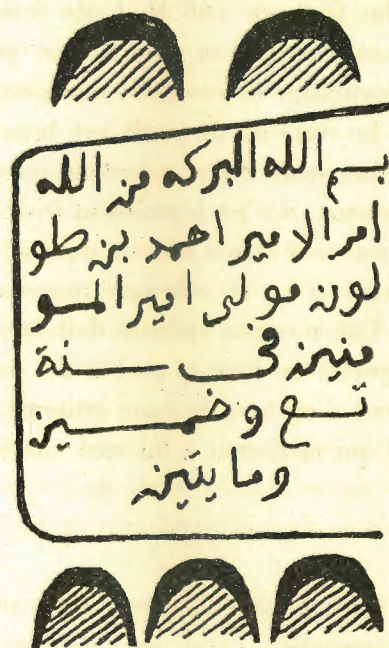 بسم الله البركه من الله
امر الامير احمد بن طو
لون مولى امير المو
منين في سنة
تسع وخمسين
ومايتين